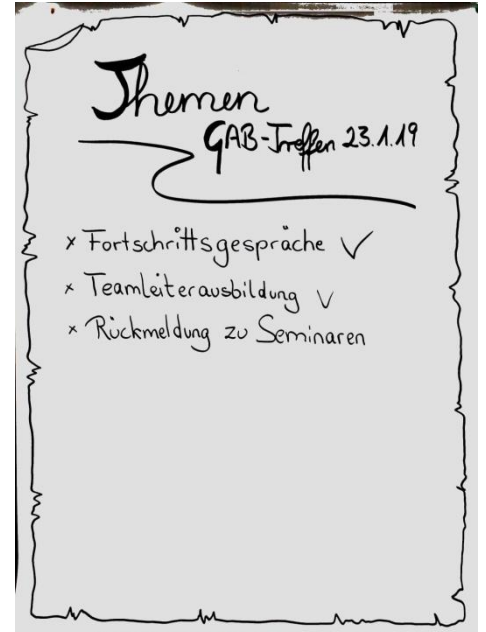 Themen
GAB-Treffen 23.1.19
x Fortschrittsgespräche ✓
x Teamleiterausbildung ✓
x Rückmeldung zu Seminaren